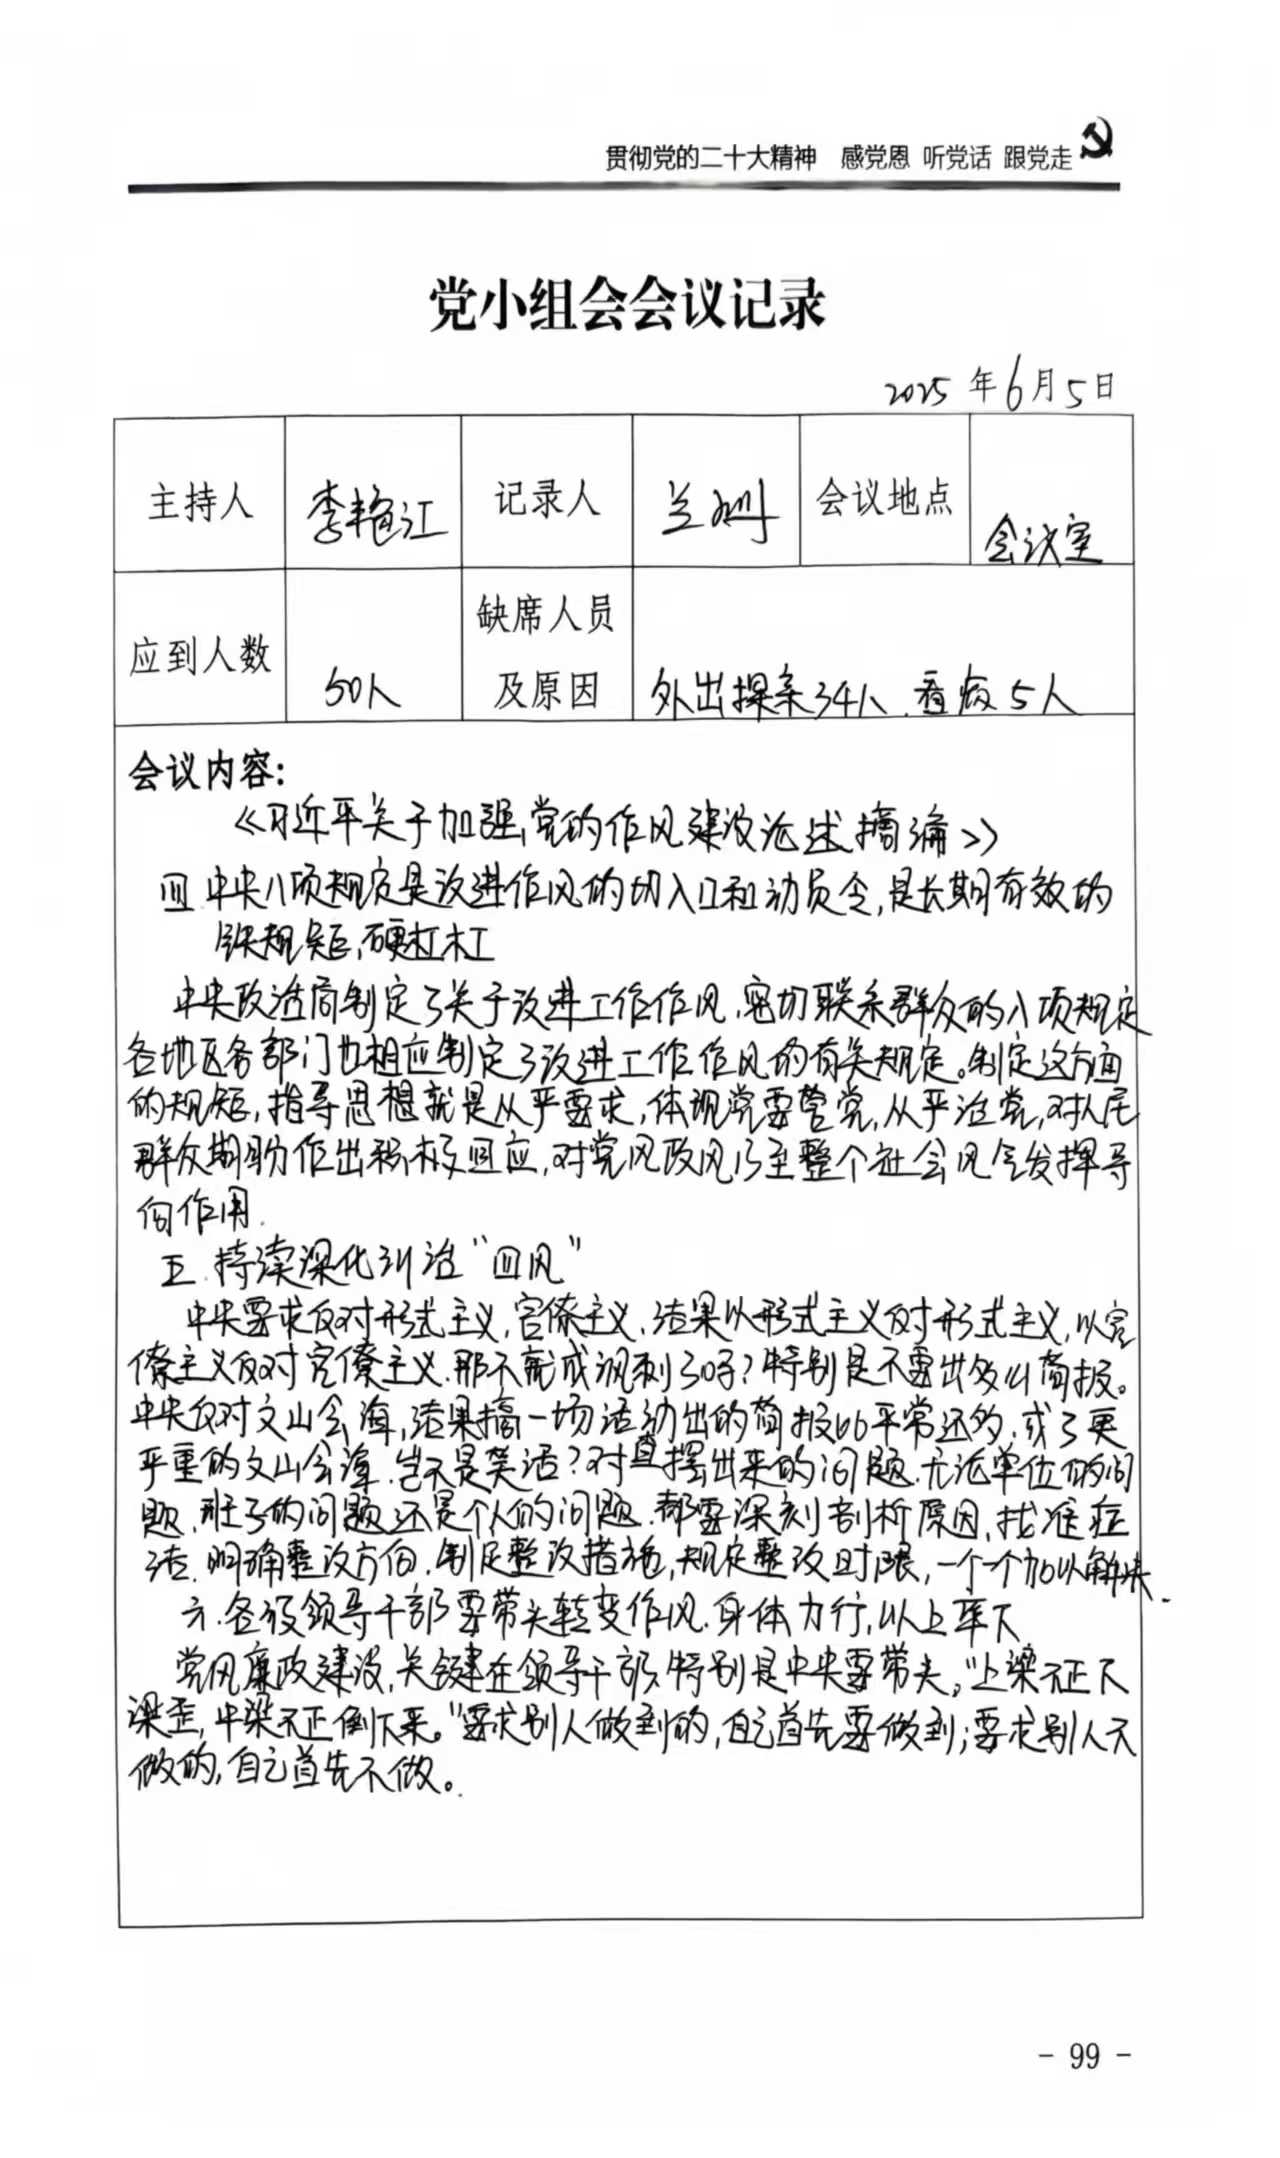 贯彻党的二十大精神 感党恩 听党话 跟党走
党小组会会议记录
2025 年 6 月 5 日
主持人 李艳江 记录人 兰 会议地点 会议室
应到人数 50人 缺席人员及原因 外出探亲34人、看病5人
会议内容：
《习近平关于加强党的作风建设论述摘编》
四、中央八项规定是改进作风的切入口和动员令，是长期有效的
铁规矩、硬杠杠
中央政治局制定了关于改进工作作风、密切联系群众的八项规定
各地区各部门也相应制定了改进工作作风的有关规定。制定这方面
的规矩，指导思想就是从严要求，体现党要管党，从严治党，对人民
群众期盼作出积极回应，对党风政风乃至整个社会风气发挥导
向作用.
五、持续深化纠治“四风”
中央要求反对形式主义、官僚主义、结果以形式主义反对形式主义，以官
僚主义反对官僚主义、那不就成讽刺了吗？特别是不要出多少简报。
中央反对文山会海，结果搞一场活动出的简报比平常还多、成了更
严重的文山会海、岂不是笑话？对查摆出来的问题、无论单位的问
题、班子的问题还是个人的问题、都要深刻剖析原因、找准症
结、明确整改方向、制定整改措施，规定整改时限，一个一个加以解决.
六、各级领导干部要带头转变作风、身体力行，以上率下
党风廉政建设，关键在领导干部，特别是中央要带头。“上梁不正下
梁歪，中梁不正倒下来。”要求别人做到的，自己首先要做到；要求别人不
做的，自己首先不做。
- 99 -